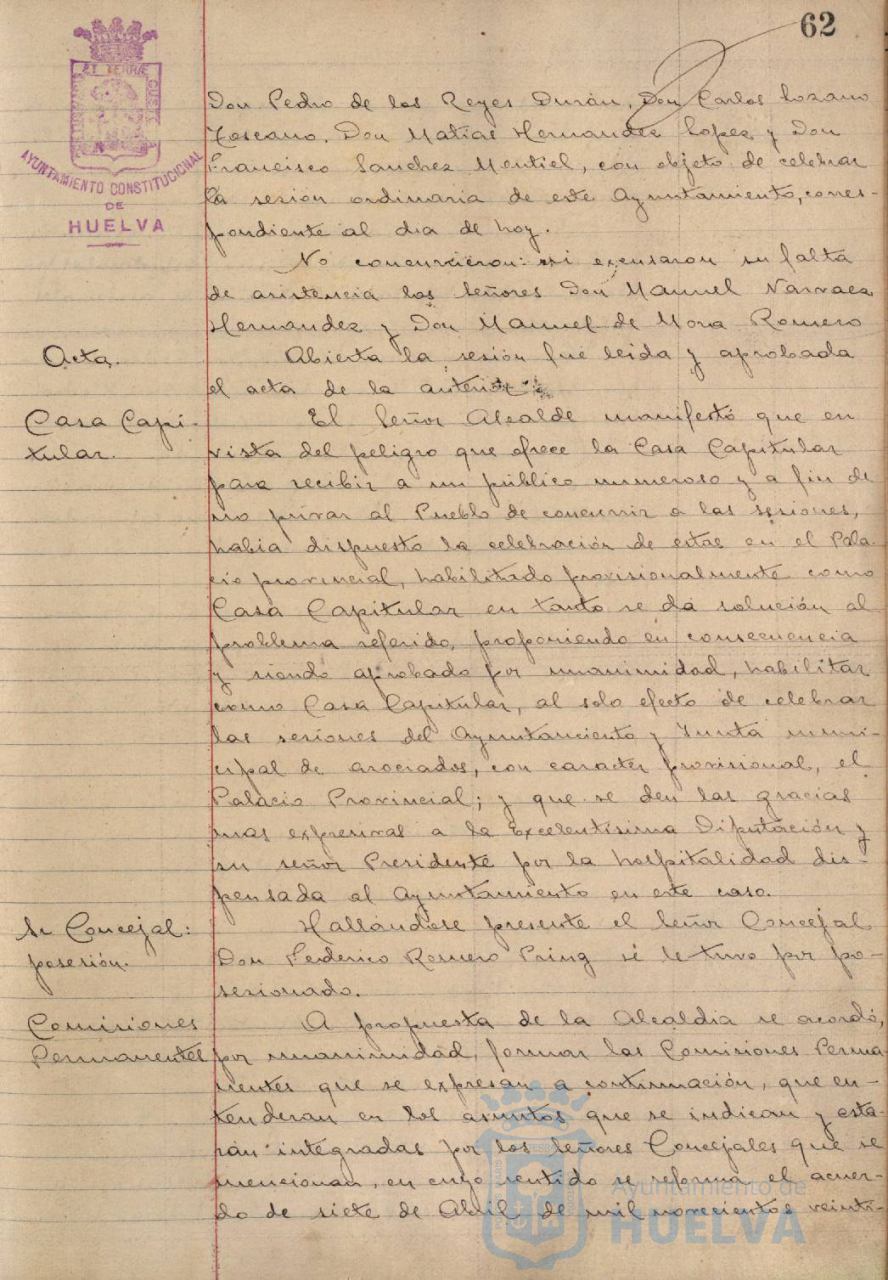 62
ET TERRÆ
AYUNTAMIENTO CONSTITUCIONAL
DE
HUELVA
Don Pedro de los Reyes Durán, Don Carlos Lozano
Toscano, Don Matias Hernandez Lopez y Don
Francisco Sanchez Montiel, con objeto de celebrar
la sesión ordinaria de este Ayuntamiento, corres-
pondiente al dia de hoy.
No concurrieron: ni excusaron su falta
de asistencia los Señores Don Manuel Narvaez
Hernandez y Don Manuel de Mora Romero
Acta.
Abierta la sesión fue leida y aprobada
el acta de la anterior.
Casa Capi-
tular.
El Señor Alcalde manifestó que en
vista del peligro que ofrece la Casa Capitular
para recibir a un público numeroso y a fin de
no privar al Pueblo de concurrir a las sesiones,
habia dispuesto la celebración de estas en el Pala-
cio provincial, habilitado provisionalmente como
Casa Capitular en tanto se da solución al
problema referido, proponiendo en consecuencia
y siendo aprobado por unanimidad, habilitar
como Casa Capitular, al solo efecto de celebrar
las sesiones del Ayuntamiento y Junta muni-
cipal de asociados, con caracter provisional, el
Palacio Provincial; y que se den las gracias
mas expresivas a la Excelentisima Diputación y
su señor Presidente por la hospitalidad dis-
pensada al Ayuntamiento en este caso.
Sr Concejal:
posesión.
Hallándose presente el Señor Concejal
Don Federico Romero Pring sé le tuvo por po-
sesionado.
Comisiones
Permanentes
A propuesta de la Alcaldia se acordó,
por unanimidad, formar las Comisiones Perma-
nentes que se expresan a continuación, que en-
tenderan en los asuntos que se indican y esta-
rán integradas por los Señores Concejales que se
mencionan, en cuyo sentido se reforma el acuer-
do de siete de Abril de mil novecientos veinti-
Ayuntamiento de
HUELVA